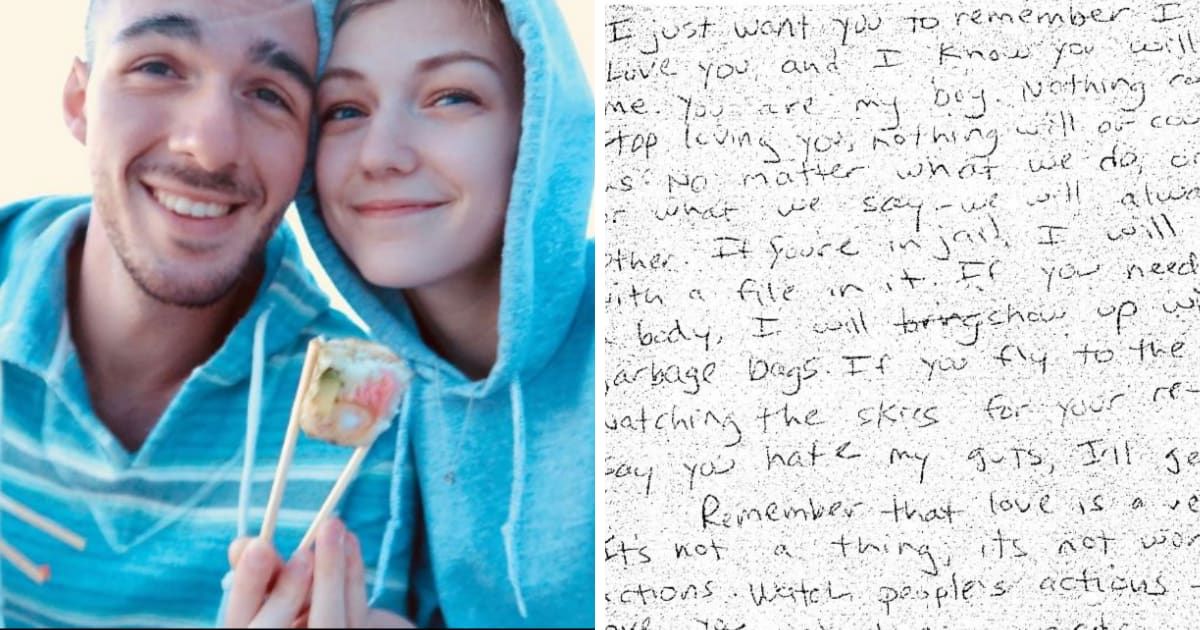 I just want you to remember I
Love you, and I know you will
me. You are my boy. Nothing
stop loving you, nothing will or
No matter what we do,
what we say - we will
If you're in jail, I will
with a file in it. If you need
body, I will bring show up
garbage bags. If you fly to the
watching the skies for your re-
say you hate my guts, I'll
Remember that love is a
it's not a thing, its not
Watch people's actions -